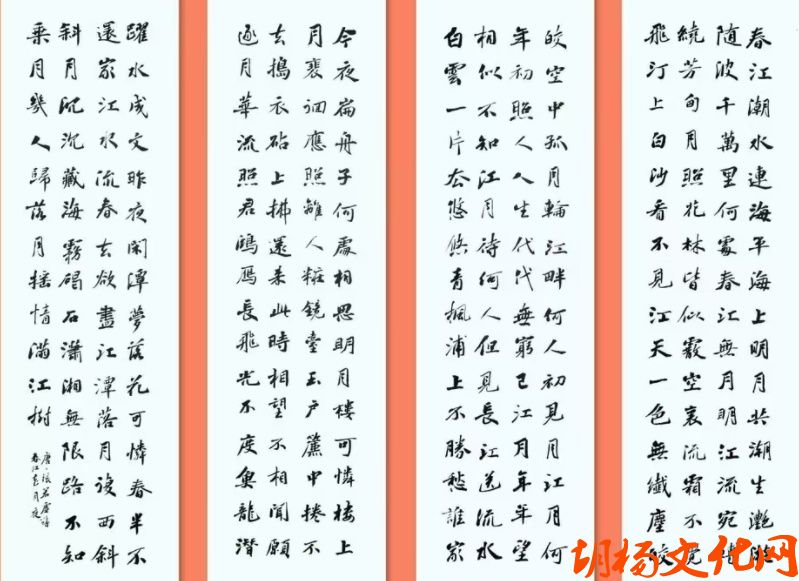 春江潮水連海平海上明月共潮生灩灩
随波千萬里何處春江無月明江流宛轉
繞芳甸月照花林皆似霰空裏流霜不覺
飛汀上白沙看不見江天一色無纖塵皎
皎空中孤月輪江畔何人初見月江月何
年初照人人生代代無窮已江月年年望
相似不知江月待何人但見長江送流水
白雲一片去悠悠青楓浦上不勝愁誰家
今夜扁舟子何處相思明月樓可憐樓上
月裵徊應照離人粧鏡臺玉户簾中捲不
去搗衣砧上拂還来此時相望不相聞願
逐月華流照君鴻雁長飛光不度魚龍潛
躍水成文昨夜閑潭夢落花可憐春半不
還家江水流春去欲盡江潭落月復西斜
斜月沉沉藏海霧碣石瀟湘無限路不知
乘月幾人歸落月摇情滿江樹
唐張若虛詩
春江花月夜
胡杨文化网